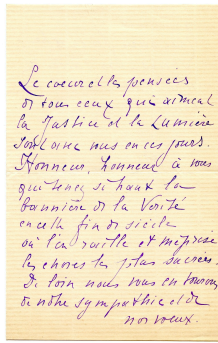 Le coeur et les pensées
de tous ceux qui aiment
la Justice et la Lumière
sont avec nous en ces jours.
Honneur, honneur à vous
qui tenez si haut la
bannière de la Vérité
en cette fin de siècle
où l'on raille et méprise
les choses les plus sacrées.
De loin nous vous envoyons
de notre sympathie et de
nos voeux.